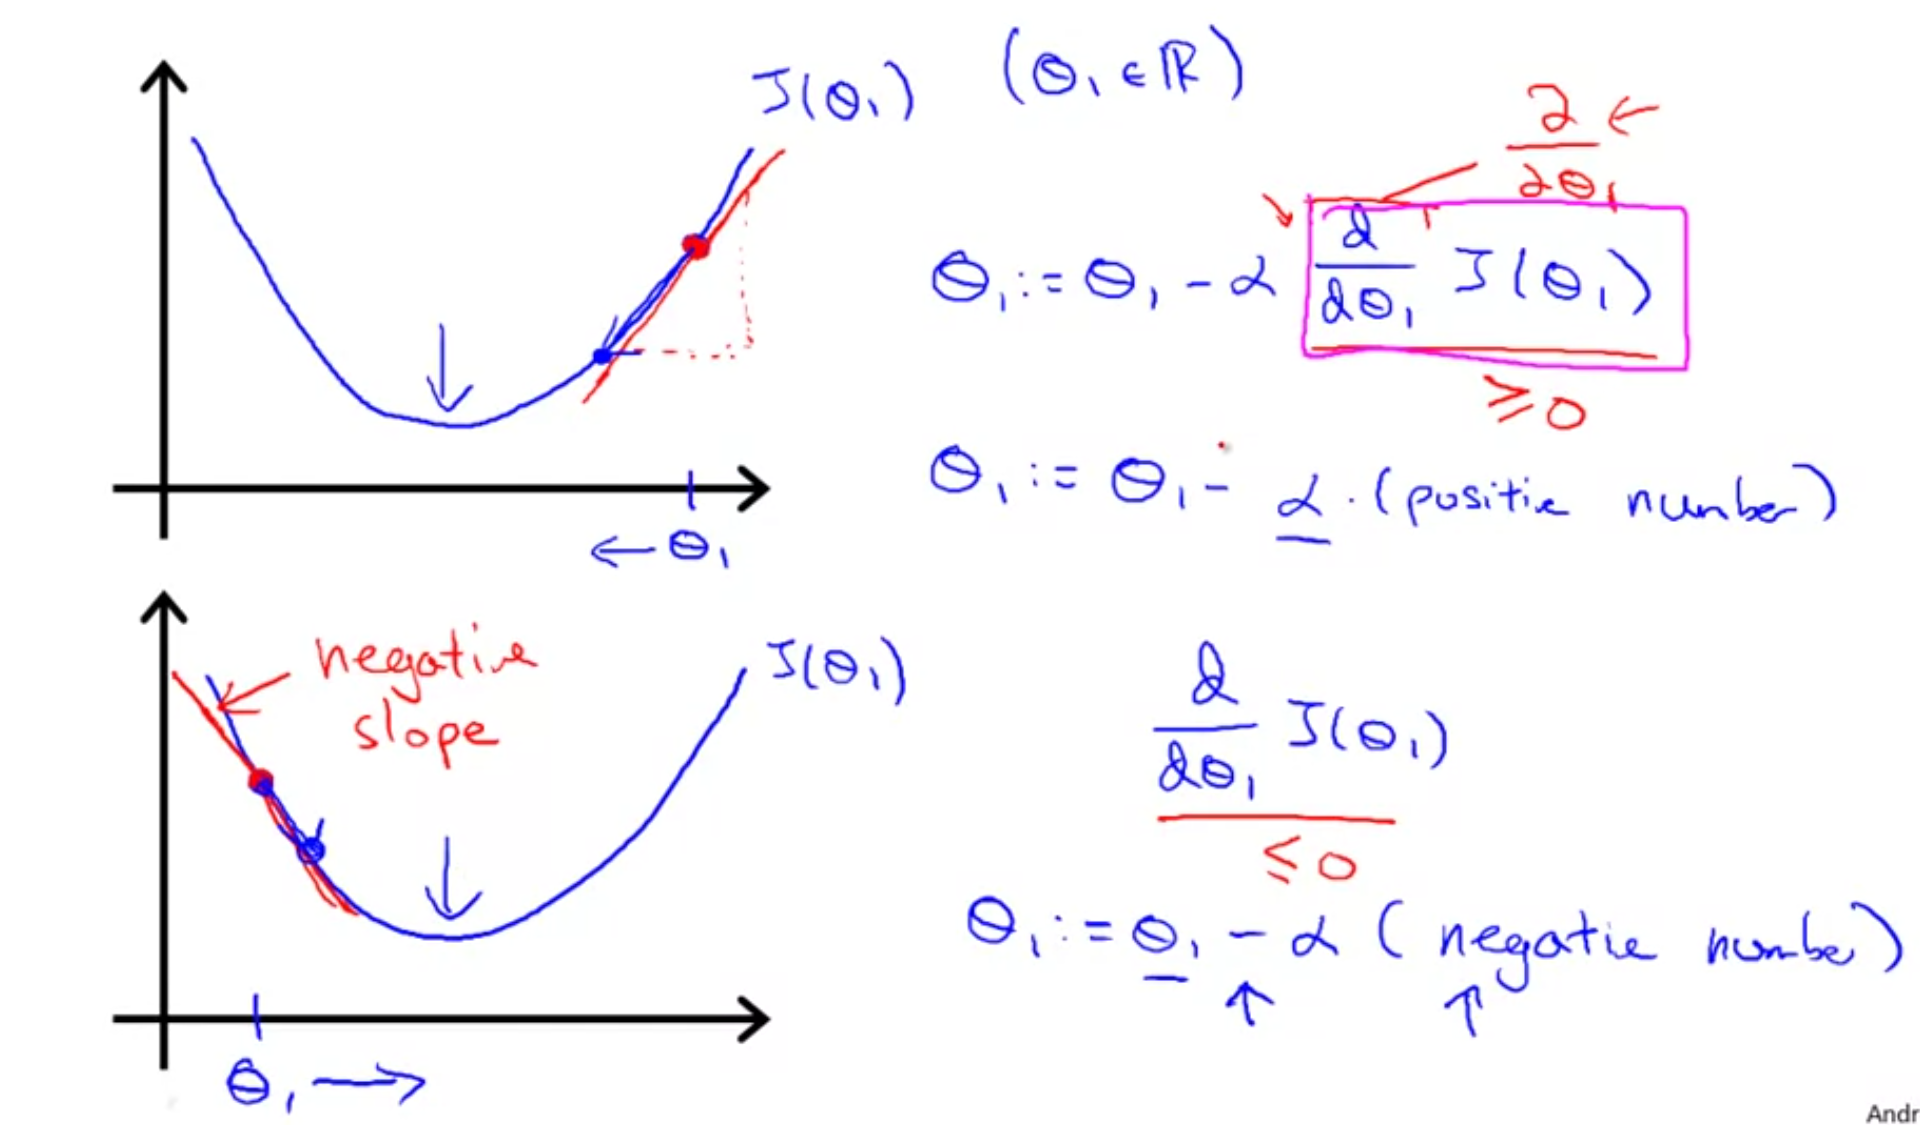 J(θ₁) (θ₁ ∈ ℝ)
∂
∂θ₁
θ₁ := θ₁ - α d/dθ₁ J(θ₁)
≥ 0
θ₁ := θ₁ - α · (positive number)
← θ₁
negative
slope
J(θ₁)
d/dθ₁ J(θ₁)
≤ 0
θ₁ := θ₁ - α (negative number)
θ₁ →
Andr